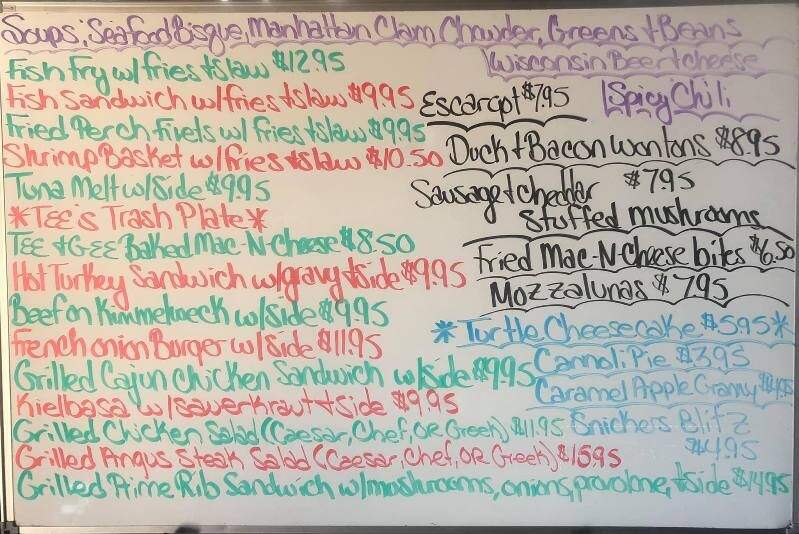 Soups: Seafood Bisque, Manhattan Clam Chowder, Greens & Beans
Wisconsin Beer & cheese
Spicy Chili
Fish Fry w/ fries & slaw $12.95
Fish Sandwich w/ fries & slaw $9.95
Fried Perch Fivels w/ fries & slaw $9.95
Shrimp Basket w/ fries & slaw $10.50
Tuna Melt w/ Side $9.95
*TEE's Trash Plate*
TEE & GEE Baked Mac-N-Cheese $8.50
Hot Turkey Sandwich w/gravy & side $9.95
Beef on Kimmelweck w/ Side $9.95
French onion Burger w/ Side $11.95
Grilled Cajun Chicken Sandwich w/side $9.95
Kielbasa w/ sauerkraut & side $9.95
Grilled Chicken Salad (Caesar, Chef, OR Greek) $11.95
Grilled Angus Steak Salad (Caesar, Chef, OR Greek) $15.95
Grilled Prime Rib Sandwich w/mushrooms, onions, provolone, & side $14.95
Escargot $7.95
Duck & Bacon wontons $8.95
Sausage & cheddar $7.95
stuffed mushrooms
Fried Mac-N-Cheese bites $6.50
Mozzalunas $7.95
*Turtle Cheesecake $5.95*
Cannoli Pie $3.95
Caramel Apple Granny $4.95
Snickers Blitz
$4.95